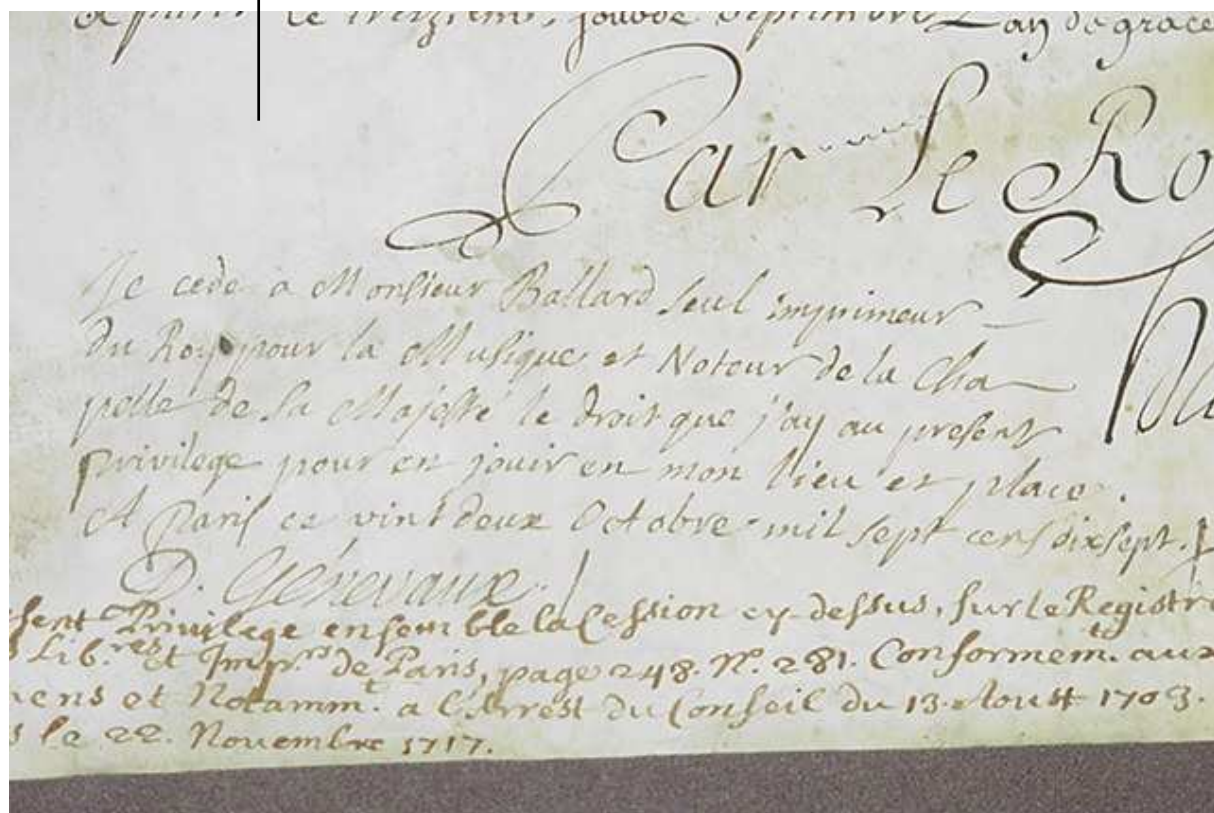 le treiziéme jour de Septembre L'an de grace
Par le Ro
Je cede a Monsieur Ballard seul imprimeur
du Roy pour la Musique et Noteur de la Cha
pelle de Sa Majesté le droit que j'ay au present
privilege pour en jouir en mon lieu et place.
A Paris ce vint deux Octobre mil sept cens dix sept.
D. Genevaux
sent Privilege ensemble la Cession cy-dessus, sur le Registre
s Lib.res et Impr.rs de Paris, page 248. No. 281. Conformem.t aux
mens et Notamm.t a l'Arrest du Conseil du 13. Aoust 1703.
s le 22. Novembre 1717.